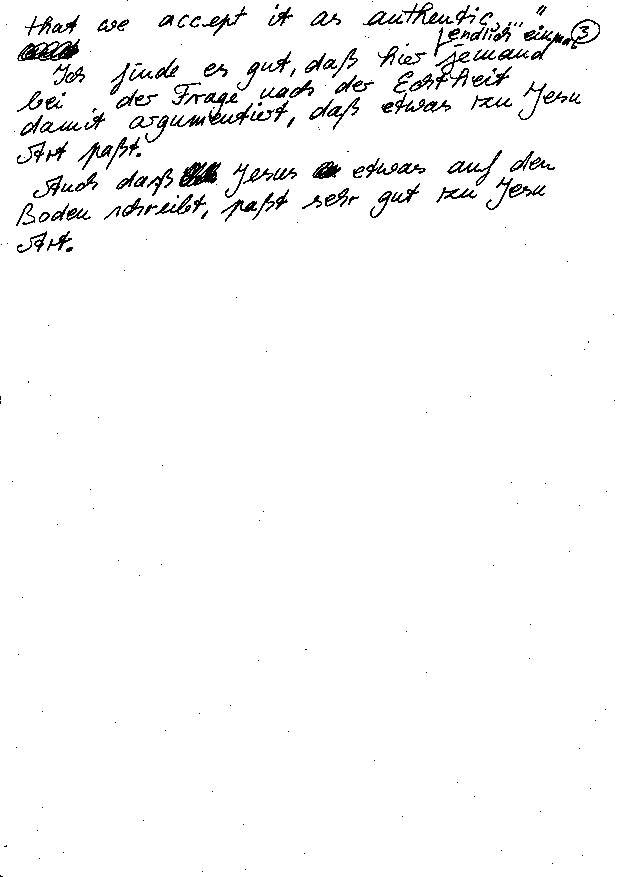 that we accept it as authentic ..." ③
endlich einmal
Ich finde es gut, daß hier jemand
bei der Frage nach der Echtheit
damit argumentiert, daß etwas zu Jesu
Art paßt.
Auch daß Jesus etwas auf den
Boden schreibt, paßt sehr gut zu Jesu
Art.